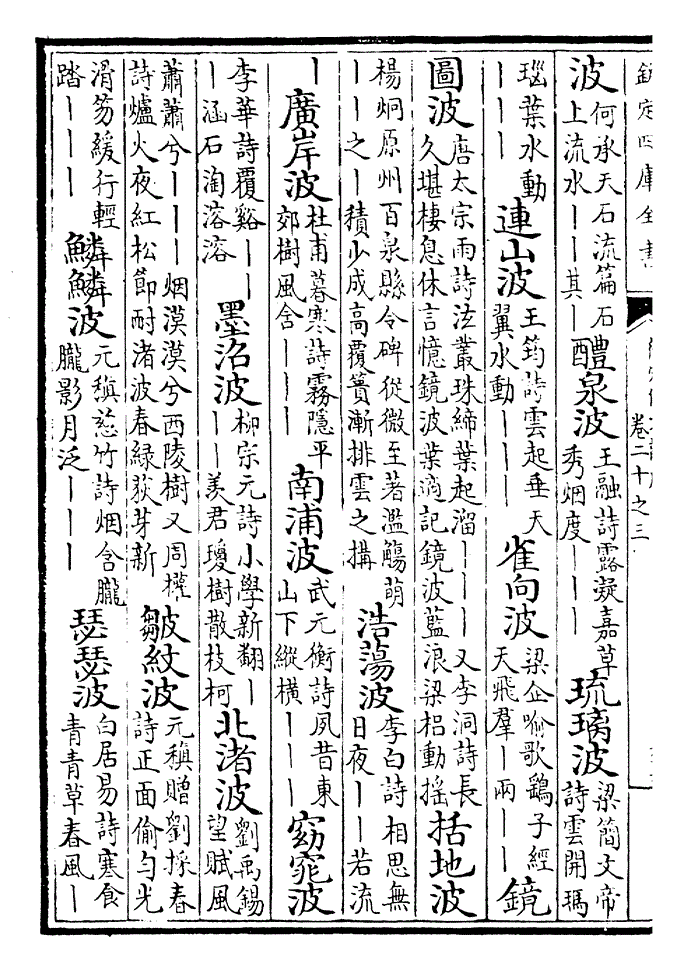 欽定四庫全書
卷二十之三
波何承天石流篇石上流水丨丨其丨醴泉波王融詩露凝嘉草秀烟度丨丨丨琉璃波梁簡文帝詩雲開瑪
瑙葉水動丨丨丨連山波王筠詩雲起垂天翼水動丨丨丨雀向波梁企喻歌鷂子經天飛羣丨兩丨丨鏡
圖波唐太宗雨詩泫叢珠締葉起溜丨丨丨又李洞詩長久堪棲息休言憶鏡波葉滴記鏡波藍浪梁梠動揺括地波
楊炯原州百泉縣令碑從微至著濫觴萌丨丨之丨積少成高覆簣漸排雲之搆浩蕩波李白詩相思無日夜丨丨若流
丨廣岸波杜甫暮寒詩霧隱平郊樹風含丨丨丨南浦波武元衡詩夙昔東山下縱横丨丨丨窈窕波
李華詩覆谿丨丨丨涵石淘溶溶墨沼波柳宗元詩小學新翻丨丨丨羡君瓊樹散枝柯北渚波劉禹錫望賦風
蕭蕭兮丨丨丨烟漠漠兮西陵樹又周權詩爐火夜紅松節耐渚波春緑荻芽新皺紋波元稹贈劉採春詩正面偷匀光
滑笏緩行輕踏丨丨丨鱗鱗波元稹慈竹詩烟含朧朧影月泛丨丨丨瑟瑟波白居易詩寒食青青草春風丨